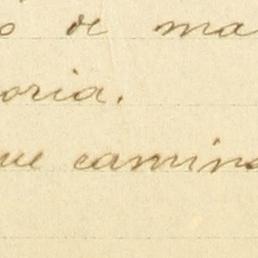 o de ma
oria.
ue camino